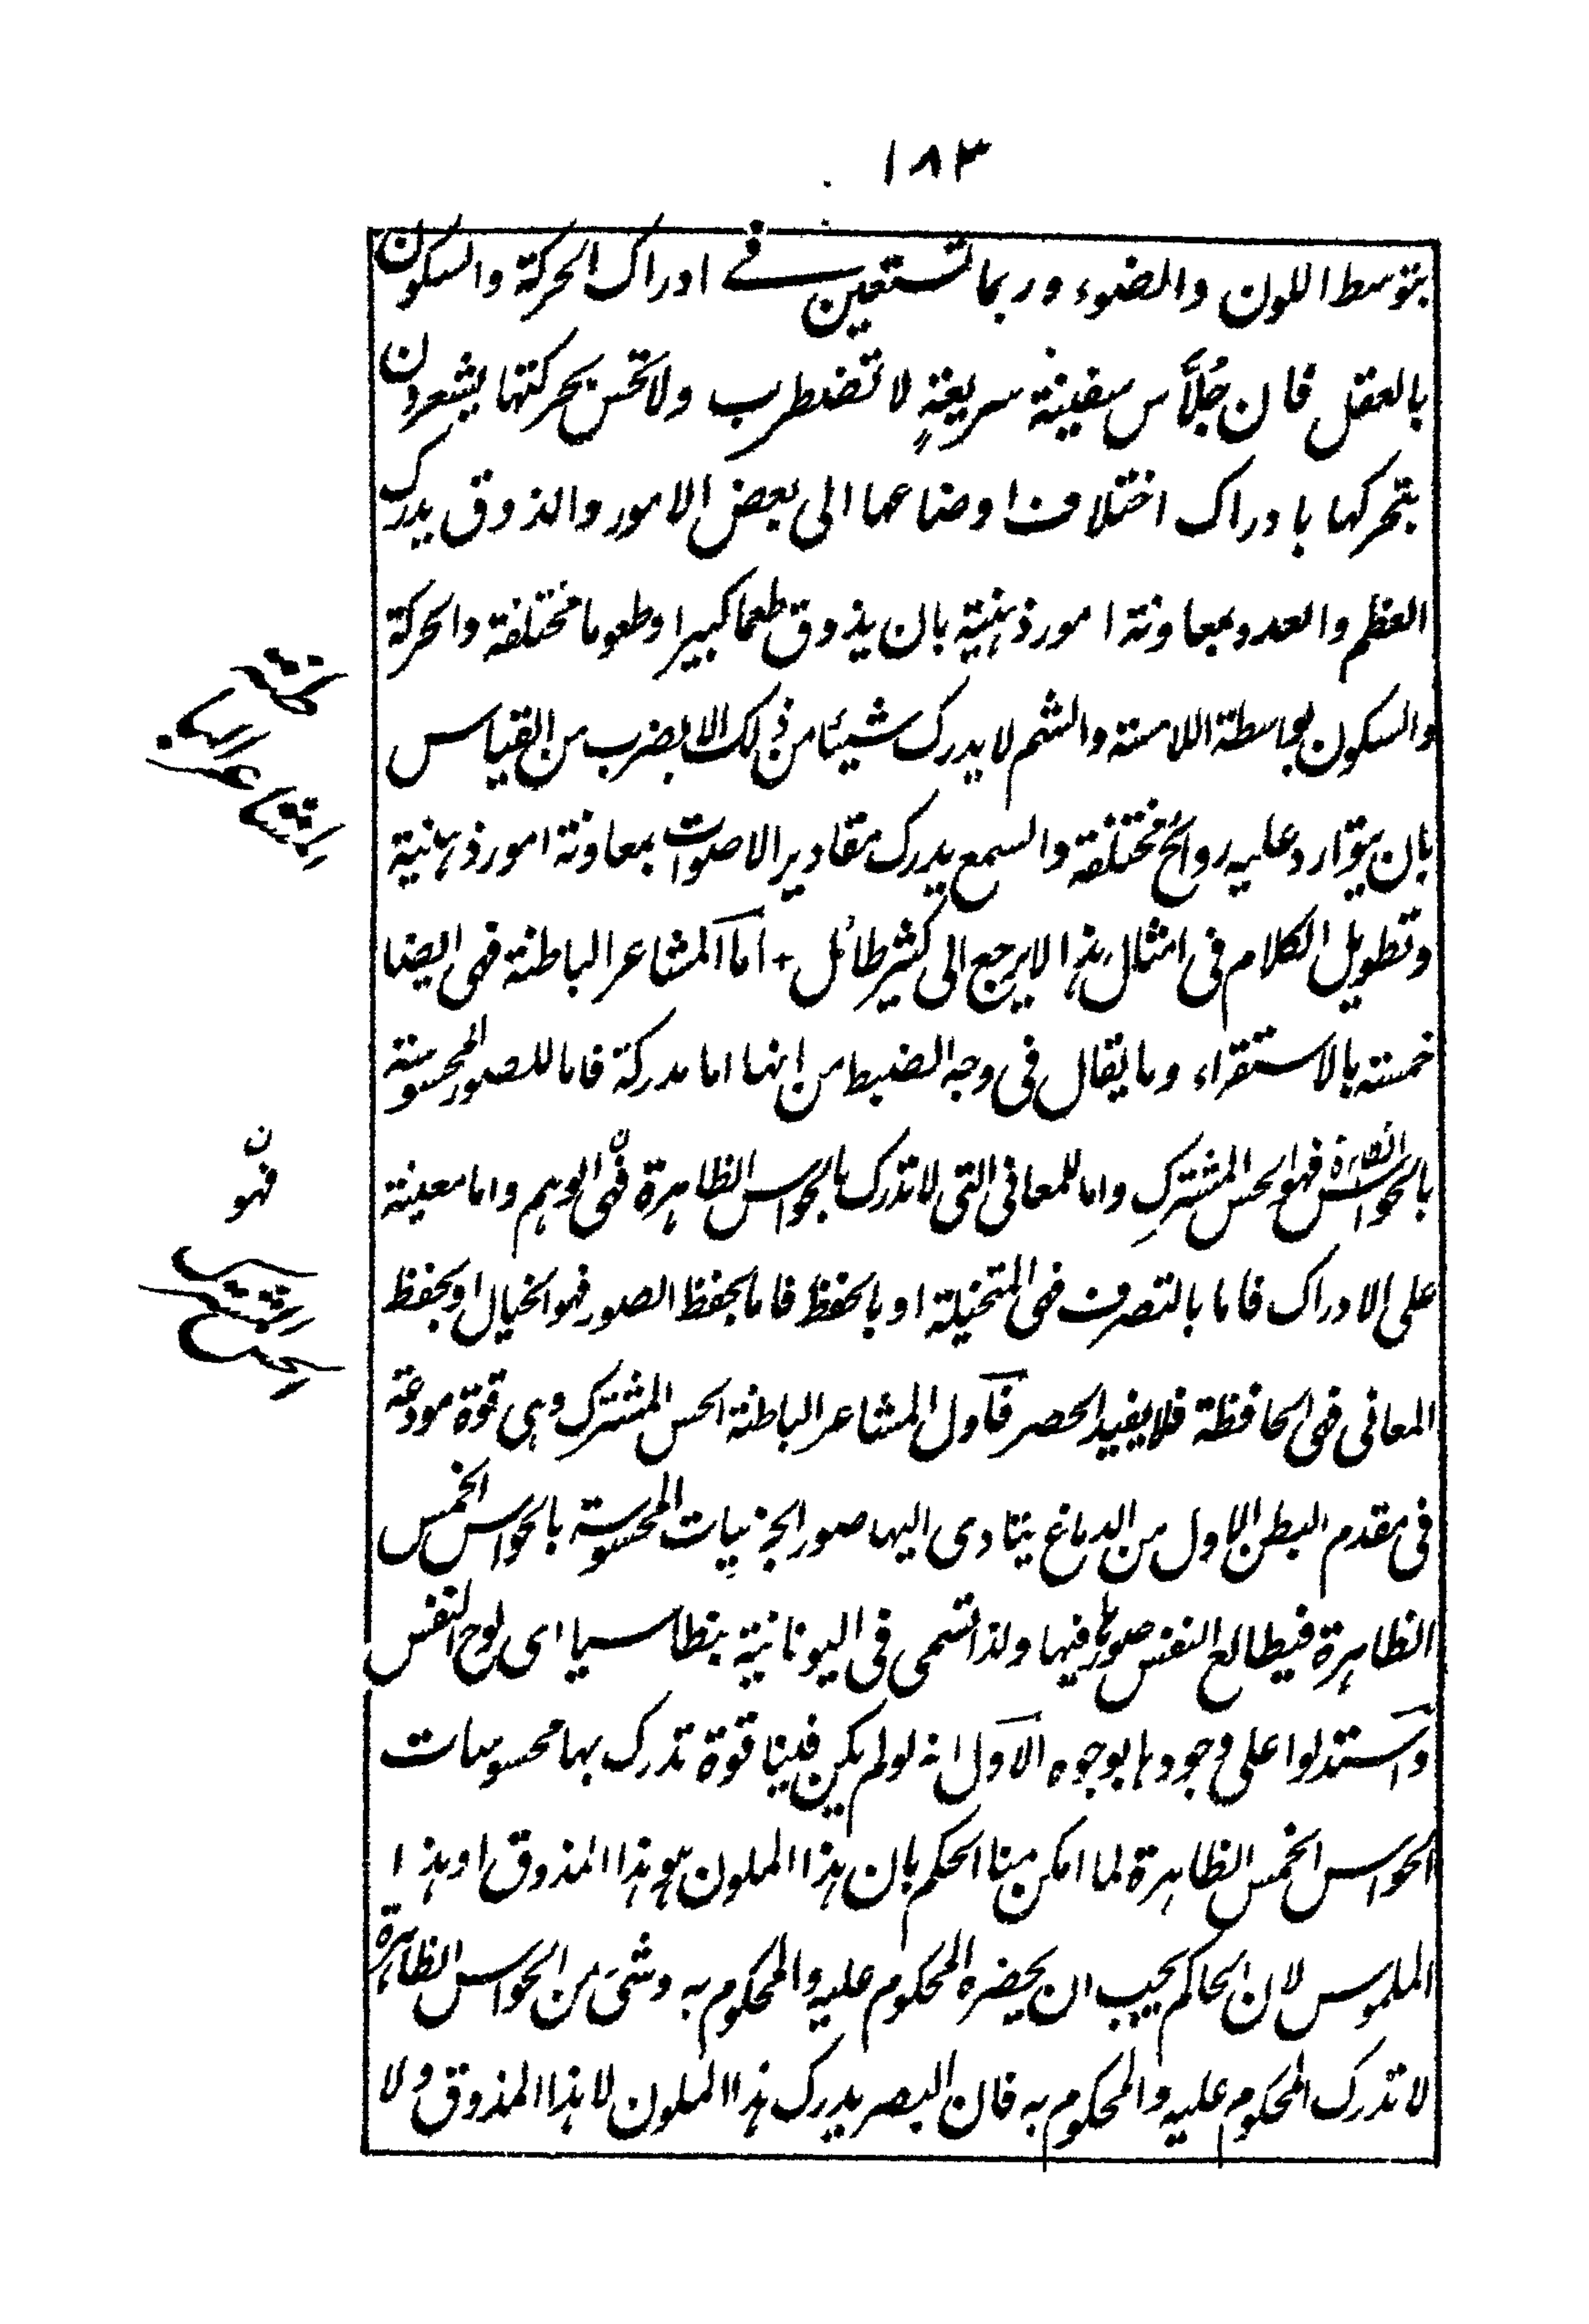 ١٨٣
بتوسط اللون والضوء وربما تستعين في ادراك الحركة والسكون
بالعقل فان جُلَّاس سفينة سريعةٍ لا تضطرب ولا تحس بحركتها يشعرون
بتحركها بادراك اختلاف اوضاعها الى بعض الامور والذوق يدرك
العظم والعدد بمعاونة امور ذهنية بان يذوق طعما كبيرا وطعوما مختلفة والحركة
والسكون بواسطة اللامسة والشم لا يدرك شيئا من ذلك الا بضرب من القياس
بان يتوارد عليه روائح مختلفة والسمع يدرك مقادير الاصوات بمعاونة امور ذهنية
وتطويل الكلام في امثال هذا لا يرجع الى كثير طائل + اما المشاعر الباطنة فهى ايضا
خمسة بالاستقراء وما يقال في وجه الضبط من انها اما مدركة فاما للصور المحسوسة
بالحواس الظاهرة فهو الحس المشترك واما للمعاني التي لا تدرك بالحواس الظاهرة فهى الوهم واما معينة
على الادراك فاما بالتصرف فهى المتخيلة او بالحفظ فاما بحفظ الصور فهو الخيال او بحفظ
المعاني فهى الحافظة فلا يفيد الحصر فاول المشاعر الباطنة الحس المشترك وهى قوة مودعة
في مقدم البطن الاول من الدماغ يتادى اليها صور الجزييات المحسوسة بالحواس الخمس
الظاهرة فيطالع النفس صورها فيها ولذا تسمى في اليونانية بنطاسيا اى لوح النفس
واستدلوا على وجودها بوجوه الاول انه لو لم يكن فينا قوة تدرك بها محسوسات
الحواس الخمس الظاهرة لما امكن منا الحكم بان هذا الملون هو هذا المذوق او هذا
الملموس لان الحاكم يجب ان يحضره المحكوم عليه والمحكوم به وشئ من الحواس الظاهرة
لا تدرك المحكوم عليه والمحكوم به فان البصر يدرك هذا الملون لا هذا المذوق ولا
المشاعر الباطنة
ن
فهو
الحس المشترك